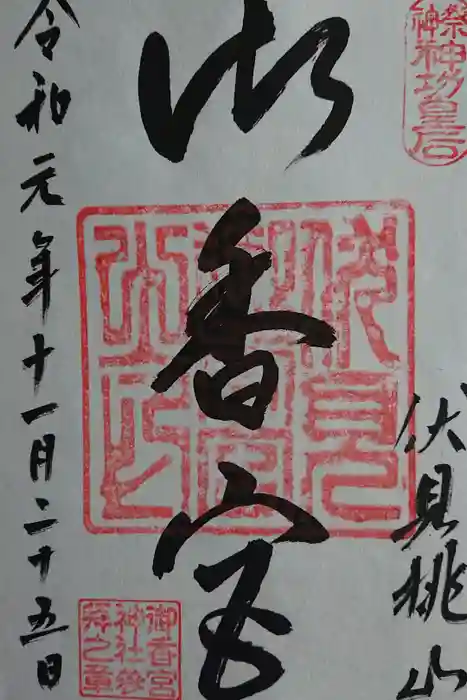 祭神神功皇后
伏見桃山
御香宮
伏見御香宮之印
令和元年十一月二十五日
御香宮
神社参
拜之章